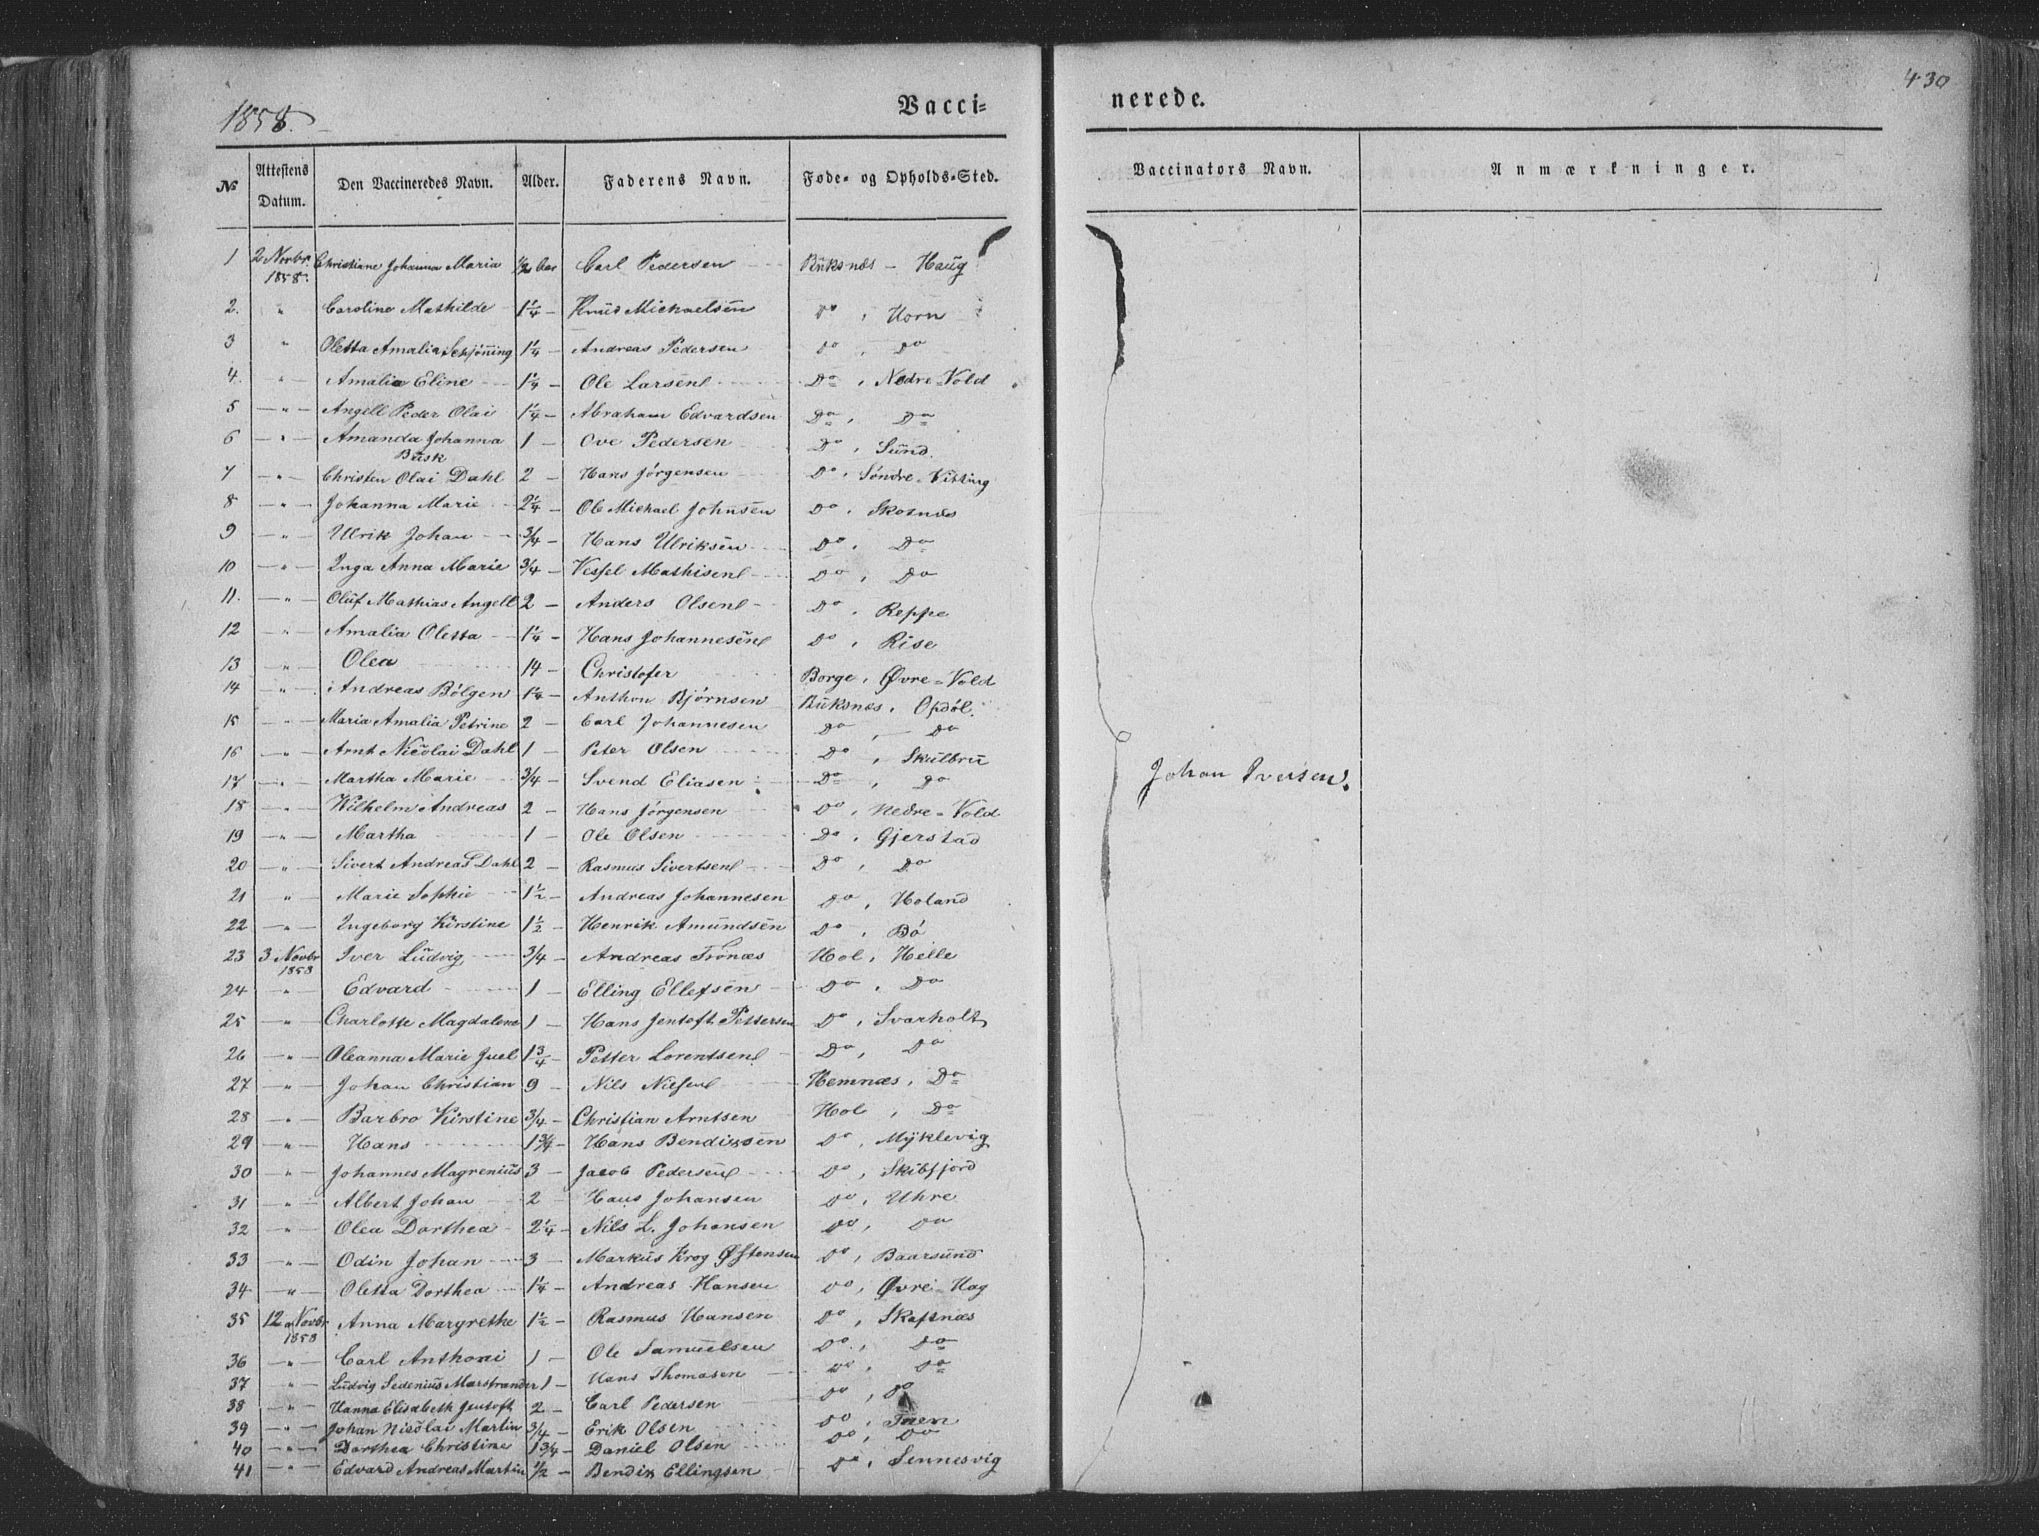 430
1858.
Vacci= nerede.
№ Attestens Datum. Den Vaccineredes Navn. Alder. Faderens Navn. Føde- og Opholds-Sted. Vaccinators Navn. Anmærkninger.
1 2 Novbr 1858. Christiane Johanna Maria ½ Aar Carl Pedersen Buksnæs - Haug
2. " Caroline Mathilde 1¼ - Knud Michaelsen Do, Horn
3 " Oletta Amalia Schjøning 1¼ - Andreas Pedersen Do, Do
4. " Amalia Eline 1¼ - Ole Larsen Do, Nedre-Vold
5 - " - Angell Peder Olai 1¼ - Abraham Edvardsen Do, Do
6 - " - Amanda Johanna Busk 1 - Ove Pedersen Do, Sund.
7 - " - Christen Olai Dahl 2 - Hans Jørgensen Do, Søndre-Vitting
8 " - Johanna Marie 2¼ - Ole Michael Johnsen Do, Skotnæs
9 - " - Ulrik Johan ¾ - Hans Ulriksen Do, Do
10 - " - Inga Anna Marie ¾ - Vessel Mathisen Do, Do
11. - " - Oluf Mathias Angell 2 - Anders Olsen Do, Reppe
12 " - Amalia Oletta 1¼ - Hans Johannesen Do, Rise
13 - " - Olea 14 - Christofer Borge, Øvre-Vold
14 - " - Andreas Bölgen 1¼ - Anthon Bjørnsen Buksnæs, Opdøl.
15 - " - Maria Amalia Petrine 2 - Carl Johannesen Do, Do
16 - " - Arnt Nicolai Dahl 1 - Peter Olsen Do, Skulbru
17 - " - Martha Marie ¾ - Svend Eliasen Do, Do
18 - " - Wilhelm Andreas 2 - Hans Jørgensen Do, Nedre-Vold
19 - " - Martha 1 - Ole Olsen Do, Gjerstad
20 - " - Sivert Andreas Dahl 2 - Rasmus Sivertsen Do, Do
21 " - Marie Sophie 1½ - Andreas Johannesen Do, Holand
22 - " - Ingeborg Kirstine 1½ - Henrik Amundsen Do, Bö
23 3 Novbr 1858 Iver Ludvig ¾ - Andreas Trönæs Hol, Helle
24 " - Edvard 1 - Elling Ellefsen Do, Do
25 - " - Charlotte Magdalene 1 - Hans Jentoft Pettersen Do, Svarholt
26 - " - Oleanna Marie Juel 1¾ - Petter Lorentsen Do, Do
27 - " - Johan Christian 9 - Nils Nilsen Hemnæs, Do
28 - " - Barbro Kirstine ¾ - Christian Arntsen Hol, Do
29 - " - Hans 1¾ - Hans Bendixsen Do, Myklevig
30 - " - Johannes Magrenius 3 - Jacob Pedersen Do, Skibfjord
31 - " - Albert Johan 2 - Hans Johansen Do, Uhre
32 - " - Olea Dorthea 2¼ - Nils L. Johansen Do, Do
33 - " - Odin Johan 3 - Markus Krog Østensen Do, Baarsund
34 - " - Oletta Dorthea 1¼ - Andreas Hansen Do, Øvre-Hag
35 12 Novbr 1858 Anna Margrethe 1½ - Rasmus Hansen Do, Skaftnæs
36 - " - Carl Anthoni 1 - Ole Samuelsen Do, Do
37 - " - Ludvig Sedenius Marstrander 1 - Hans Thomasen Do, Do
38 - " - Hanna Elisabeth Jentoft 2 - Carl Pedersen Do, Do
39 - " - Johan Nicolai Martin ¾ - Erik Olsen Do,
40 - " - Dorthea Christine 1¾ - Daniel Olsen Do, Do
41 - " - Edvard Andreas Martin ½ - Bendix Ellingsen Do, Sennesvig
Johan Iversen.